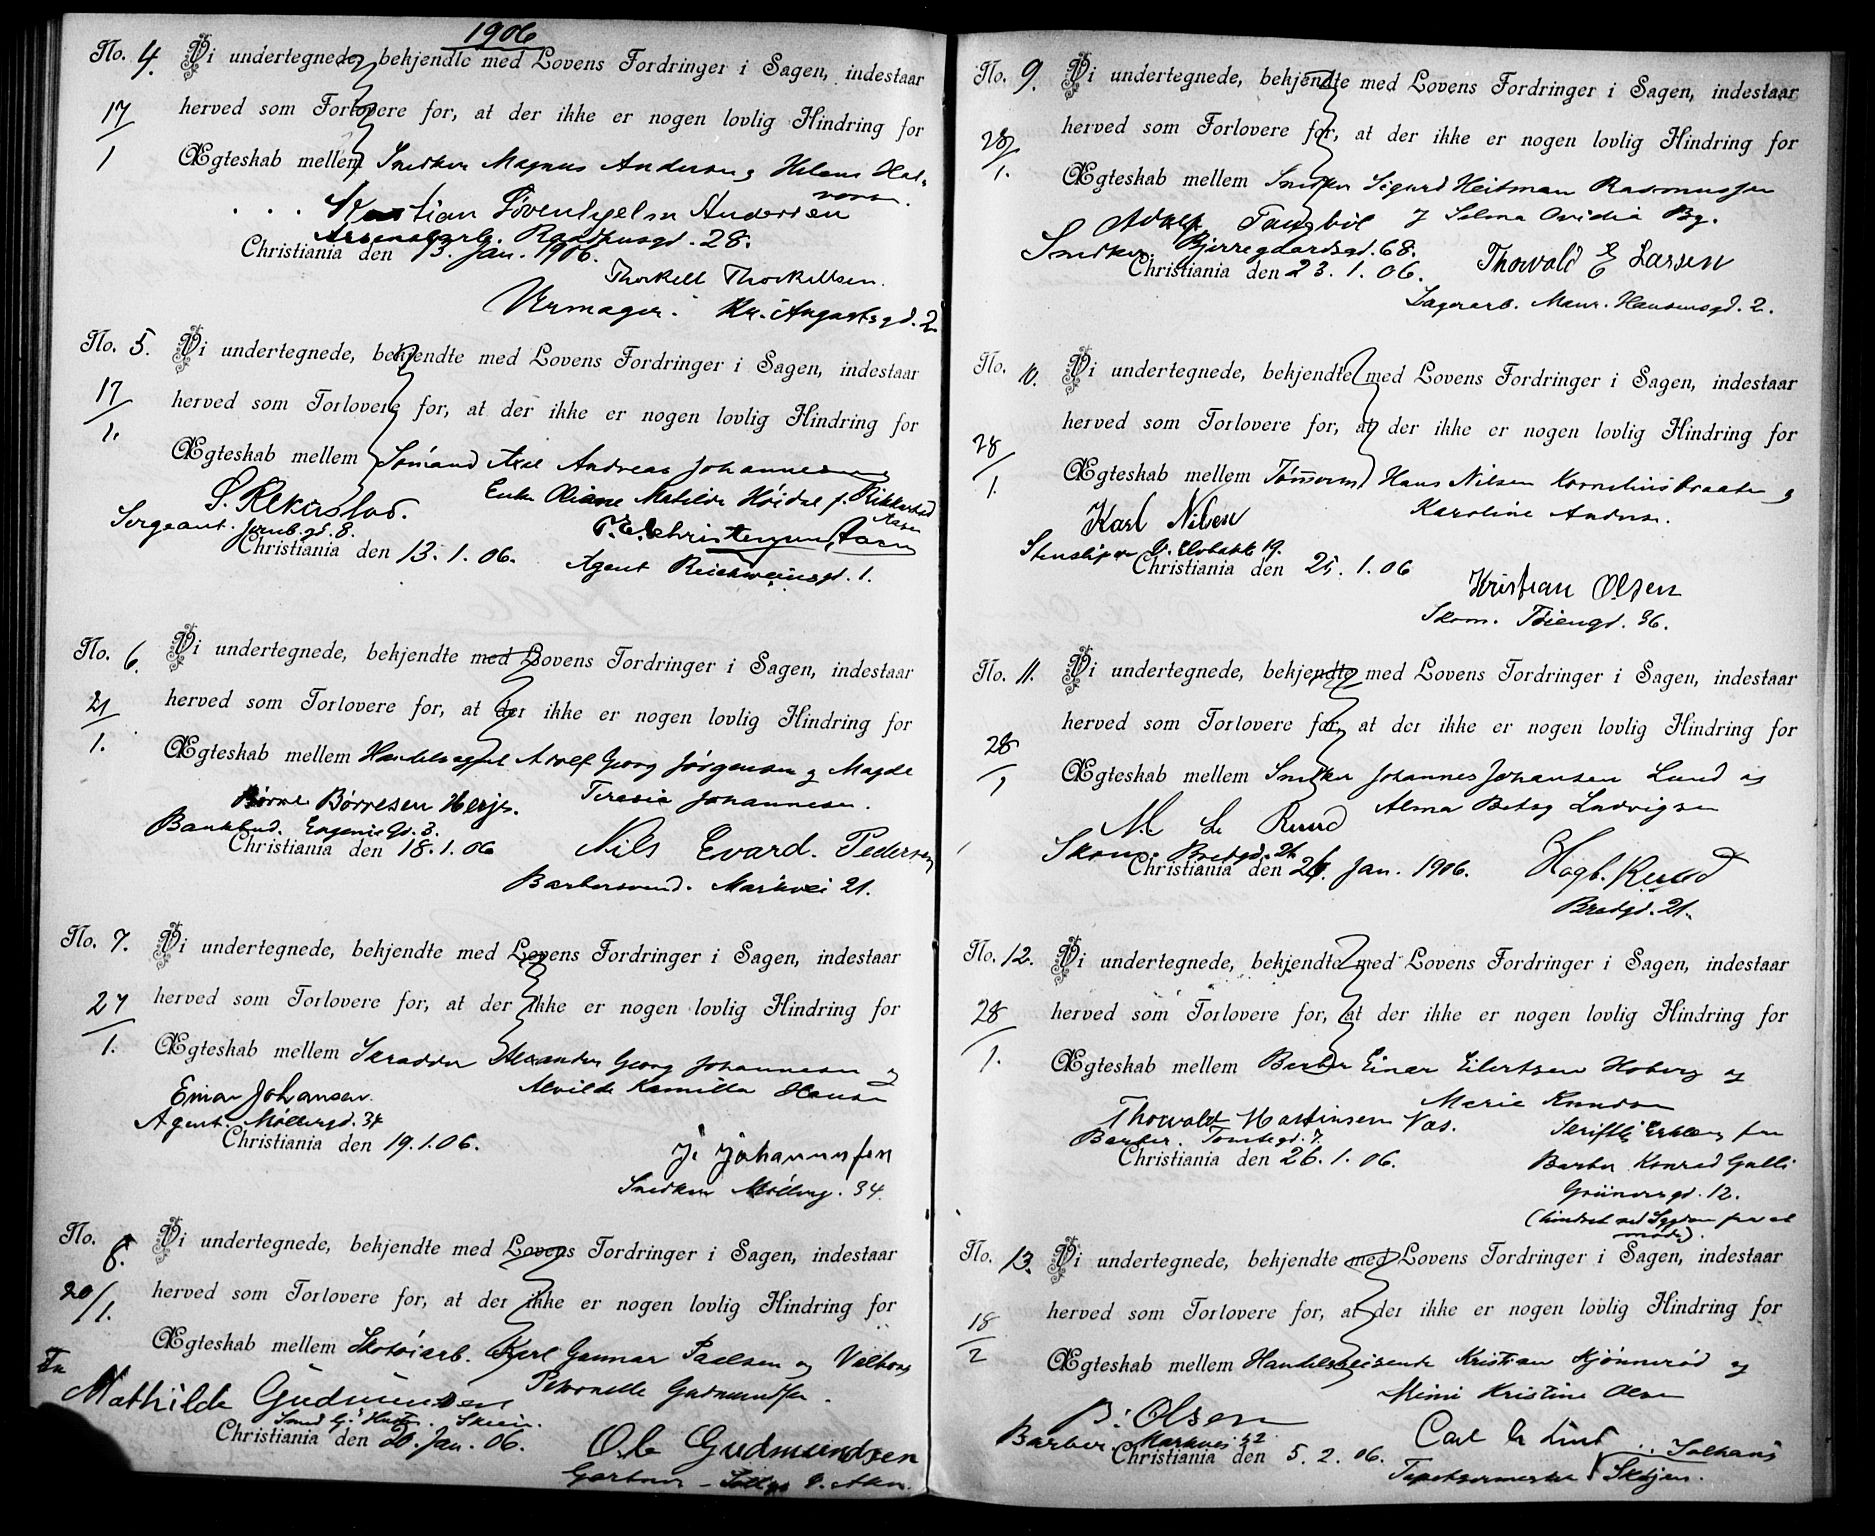 1906
No. 4. Vi undertegnede, bekjendte med Lovens Fordringer i Sagen, indestaar
17/1 herved som Forlovere for, at der ikke er nogen lovlig Hindring for
Ægteskab mellem Snedker Magnus Andersen og Helene Hal-
vorsen.
Kristian Løvenhjelm Andersen
Arsenalarb. Raadhusgd. 28.
Christiania den 13. Jan. 1906.
Thorkell Thorkellsen.
Urmager. Kr. Augustsgd. 2
No. 5. Vi undertegnede, bekjendte med Lovens Fordringer i Sagen, indestaar
17/1. herved som Forlovere for, at der ikke er nogen lovlig Hindring for
Ægteskab mellem Sømand Axel Andreas Johannesen og
Enke Oliane Matilde Høidal f. Rikkardsd
Aasen
S. Rekastad.
Sergeant. gd. 8.
T. E. Christensen Aasen
Christiania den 13. 1. 06.
Agent Reichweinsgd. 1.
No. 6. Vi undertegnede, bekjendte med Lovens Fordringer i Sagen, indestaar
21/1. herved som Forlovere for, at der ikke er nogen lovlig Hindring for
Ægteskab mellem Handelsagent Adolf Georg Jørgensen og Magda
Teresie Johannesen.
Børre Børresen Herjs.
Bankbud. Eugenies Gd. 3.
Christiania den 18. 1. 06
Nils Evard. Pedersen
Barbersvend. Markvei 21.
No. 7. Vi undertegnede, bekjendte med Lovens Fordringer i Sagen, indestaar
27/1. herved som Forlovere for, at der ikke er nogen lovlig Hindring for
Ægteskab mellem Skrædder Alexander Georg Johannesen og
Alvilde Kamilla Hansen
Einar Johansen.
Agent. Møllergd. 34
Christiania den 19. 1. 06.
J. Johannesen
Snedker Møllerg. 34.
No. 8. Vi undertegnede, bekjendte med Lovens Fordringer i Sagen, indestaar
20/1. herved som Forlovere for, at der ikke er nogen lovlig Hindring for
Ægteskab mellem Skotøiarb. Karl Gunnar Paulsen og Valborg
Petronelle Gudmundsen.
Fru
Mathilde Gudmundsen
Skien.
Christiania den 20. Jan. 06.
Ole Gudmundsen
Gartner
No. 9. Vi undertegnede, bekjendte med Lovens Fordringer i Sagen, indestaar
28/1. herved som Forlovere for, at der ikke er nogen lovlig Hindring for
Ægteskab mellem Snedker Sigurd Heitman Rasmussen
og Selma Ovidia By.
Adolf Tangbøl
Snedker. Bjerregaardsgd. 68.
Christiania den 23. 1. 06.
Thorvald E Larsen
Lagerarb. Maur. Hansensgd. 2.
No. 10. Vi undertegnede, bekjendte med Lovens Fordringer i Sagen, indestaar
28/1. herved som Forlovere for, at der ikke er nogen lovlig Hindring for
Ægteskab mellem Tømmerm. Hans Nilsen Korneliusbraaten og
Karoline Anders.
Karl Nilsen
Stensliper
Christiania den 25. 1. 06
Kristian Olsen
Skom. Tøiengd. 36.
No. 11. Vi undertegnede, bekjendte med Lovens Fordringer i Sagen, indestaar
28/1 herved som Forlovere for, at der ikke er nogen lovlig Hindring for
Ægteskab mellem Snedker Johannes Johansen Lund og
Alma Betsy Ludvigsen
M L Ruud
Skom. Bredgd. 21.
Christiania den 26. Jan. 1906.
Hagb. Ruud
Bredgd. 21.
No. 12. Vi undertegnede, bekjendte med Lovens Fordringer i Sagen, indestaar
28/1. herved som Forlovere for, at der ikke er nogen lovlig Hindring for
Ægteskab mellem Barber Einar Eilertsen Hoberg og
Marie Knudsen
Thorvald Martinsen Næs.
Barber. Tomtegd. 7.
Christiania den 26. 1. 06.
Skriftl. Erklæring fra
Barber Konrad Galli
Grünersgd. 12.
(hindret ved Sygdom fra at
møde).
No. 13. Vi undertegnede, bekjendte med Lovens Fordringer i Sagen, indestaar
18/2 herved som Forlovere for, at der ikke er nogen lovlig Hindring for
Ægteskab mellem Handelsreisende Kristian Kjønnerød og
Mimi Kristine Olsen
B: Olsen
Barber. Markvei 52.
Christiania den 5. 2. 06.
Carl G Lind
Tapetsermester